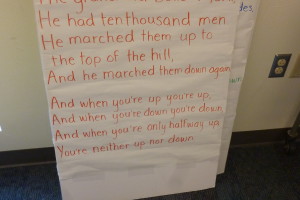 He had tenthousand men
He marched them up to
the top of the hill,
And he marched them down again.
And when you're up you're up,
And when you're down you're down,
And when you're only halfway up
You're neither up nor down